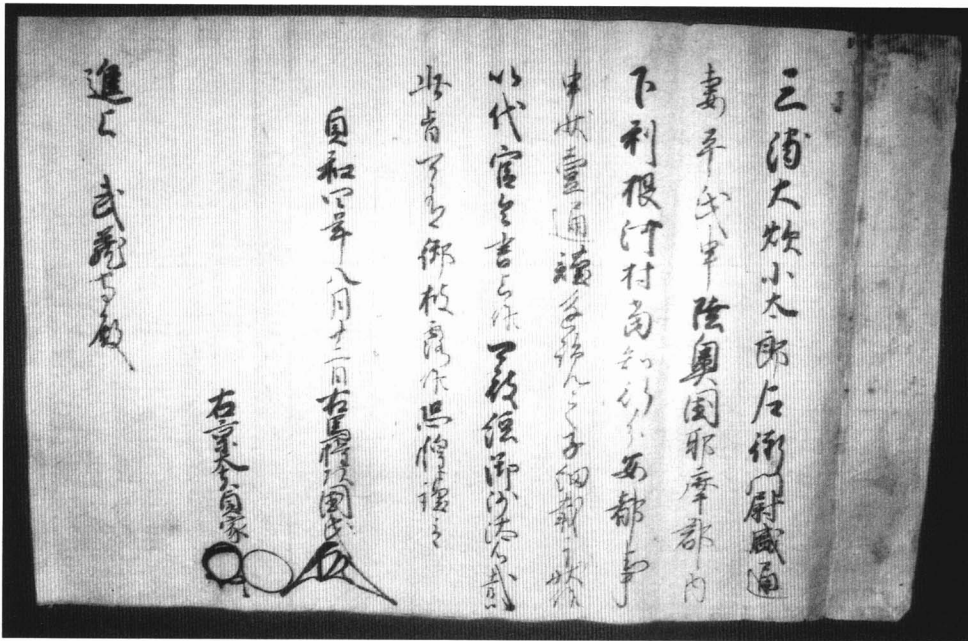 三浦大炊小太郎左衛門尉盛通
妻平氏申陸奥国耶摩郡内
下利根川村当知行分安堵事
申状壹通謹進覧之子細載于状候
以代官令言上候可被経御沙汰候哉
此旨可有御披露候恐惶謹言
貞和四年八月十二日右馬権頭国氏
右京大夫貞家
進上 武蔵守殿